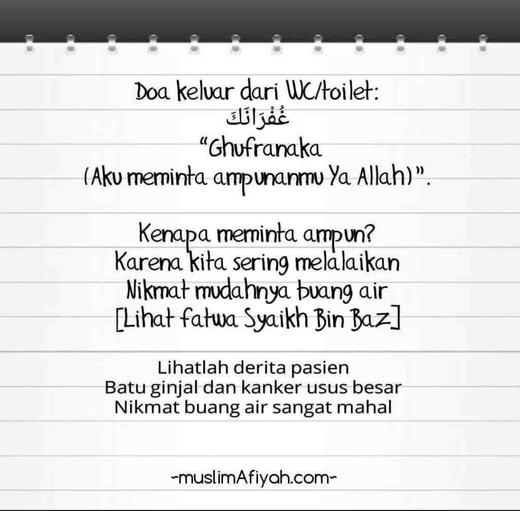 Doa keluar dari WC/toilet:
غُفْرَانَكَ
“Ghufranaka
(Aku meminta ampunanmu Ya Allah)”.
Kenapa meminta ampun?
Karena kita sering melalaikan
Nikmat mudahnya buang air
[Lihat fatwa Syaikh Bin Baz]
Lihatlah derita pasien
Batu ginjal dan kanker usus besar
Nikmat buang air sangat mahal
~muslimAfiyah.com~